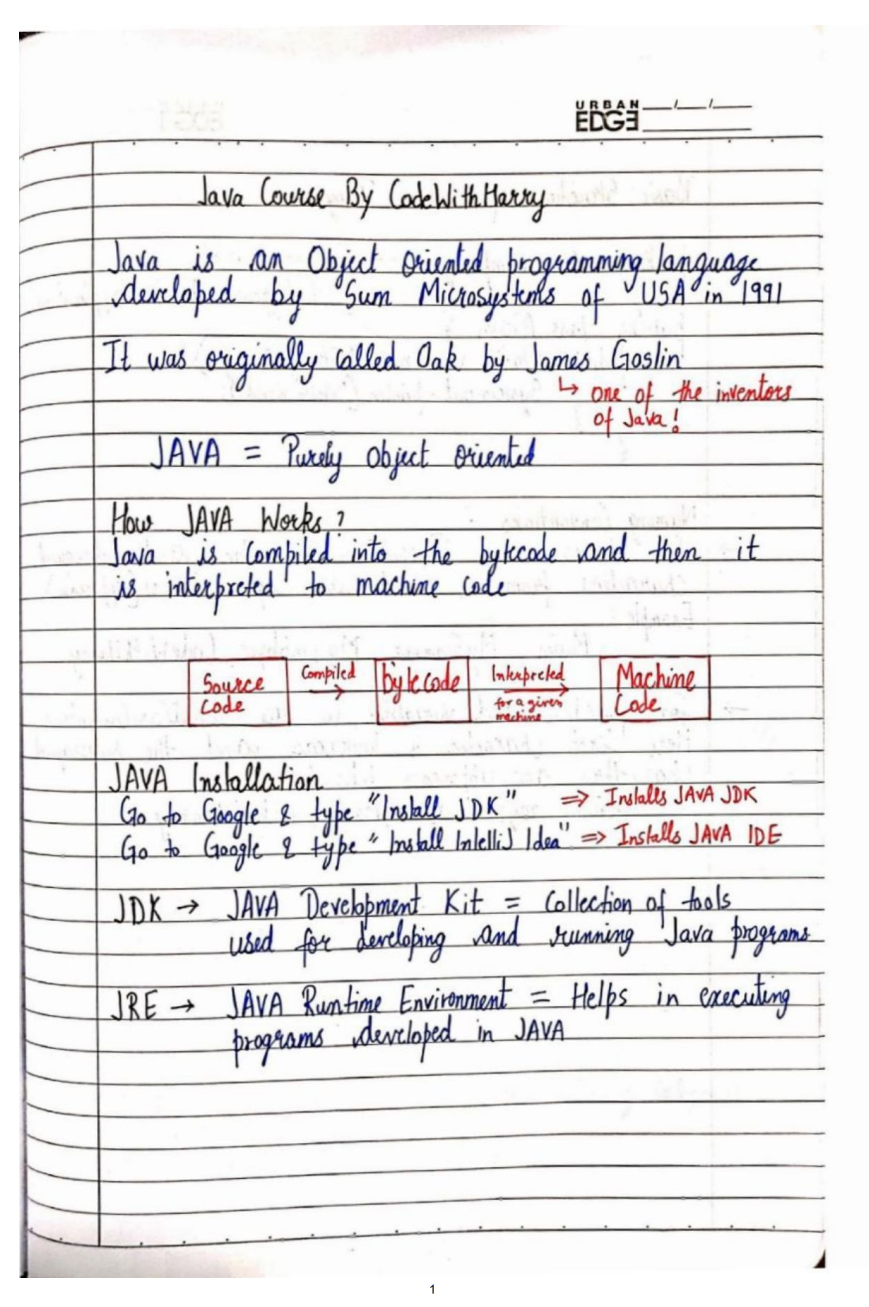 URBAN
EDGE
Java Course By CodeWithHarry
Java is an Object Oriented programming language
developed by Sum Microsystems of USA in 1991
It was originally called Oak by James Goslin
↳ one of the inventors
of Java!
JAVA = Purely object oriented
How JAVA Works?
Java is compiled into the bytecode and then it
is interpreted to machine code
Source Code
Compiled →
bytecode
Interpreted →
for a given machine
Machine Code
JAVA Installation
Go to Google & type "Install JDK" ⇒ Installs JAVA JDK
Go to Google & type "Install IntelliJ Idea" ⇒ Installs JAVA IDE
JDK → JAVA Development Kit = Collection of tools
used for developing and running Java programs
JRE → JAVA Runtime Environment = Helps in executing
programs developed in JAVA
1